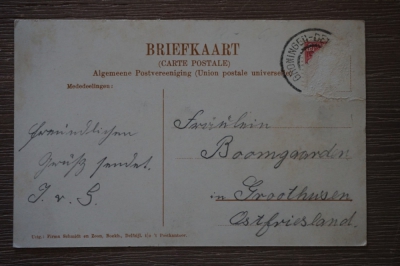 BRIEFKAART
(CARTE POSTALE)
Algemeene Postvereeniging (Union postale universe
Mededeelingen:
GRONINGEN-DE
Freundlichen
Gruß sendet.
J. v. G.
Fräulein
Boomgaarden
in Groothusen
Ostfriesland.